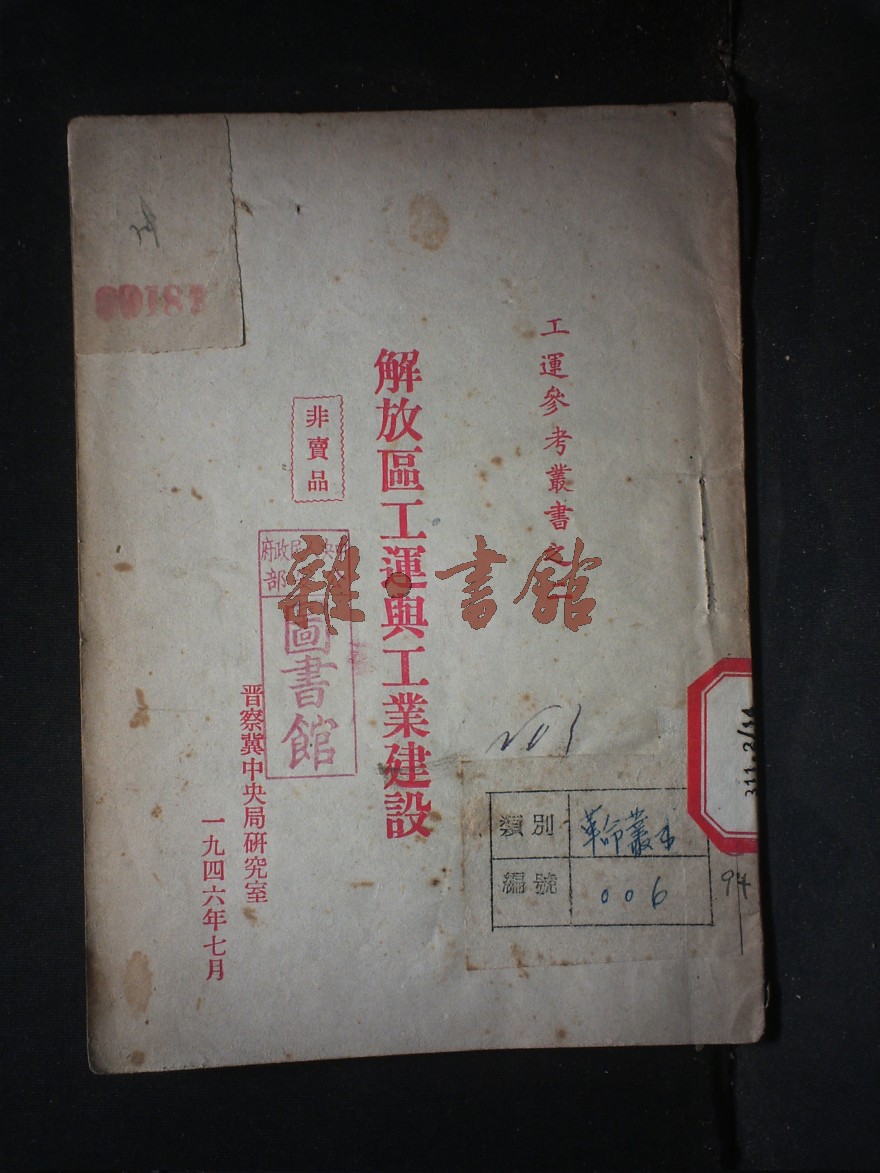 工運參考叢書之
解放區工運與工業建設
非賣品
晋察冀中央局研究室
一九四六年七月
府政
部
圖書館
雜·書館
類別 革命叢
編號 006
94
311.2/